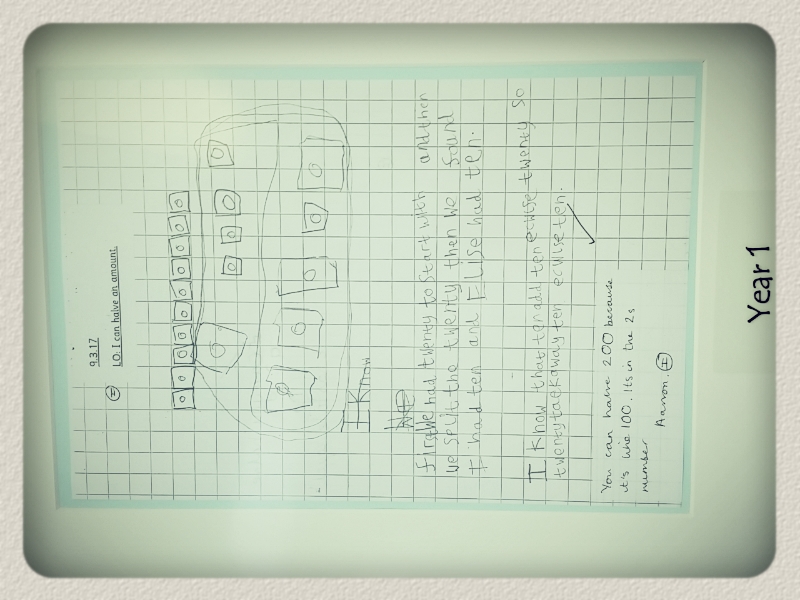 9.3.17
I L.O. I can halve an amount.
I Know
We
firswe had twenty to Start with and then
we split the twenty then we found
I had ten and Elise had ten.
I Know that ten add ten ecwlse twenty so
twenty taekaway ten ecwlse ten.
You can halve 200 because
it's like 100. Its in the 2s
number Aaron. I
Year 1